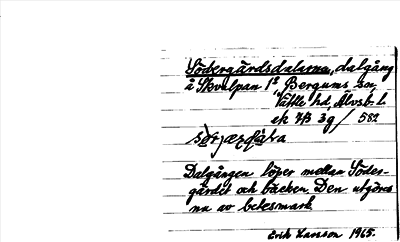 Södergärdsdalarna, dalgång
å Skulpan 1⁵, Bergums sn,
Vättle hd, Älvsb. l.
ek 7B 3g / 582
Dalgången löper mellan Söder-
gärdet och bäcken. Den utgöres
nu av betesmark
Erik Larsson 1965.